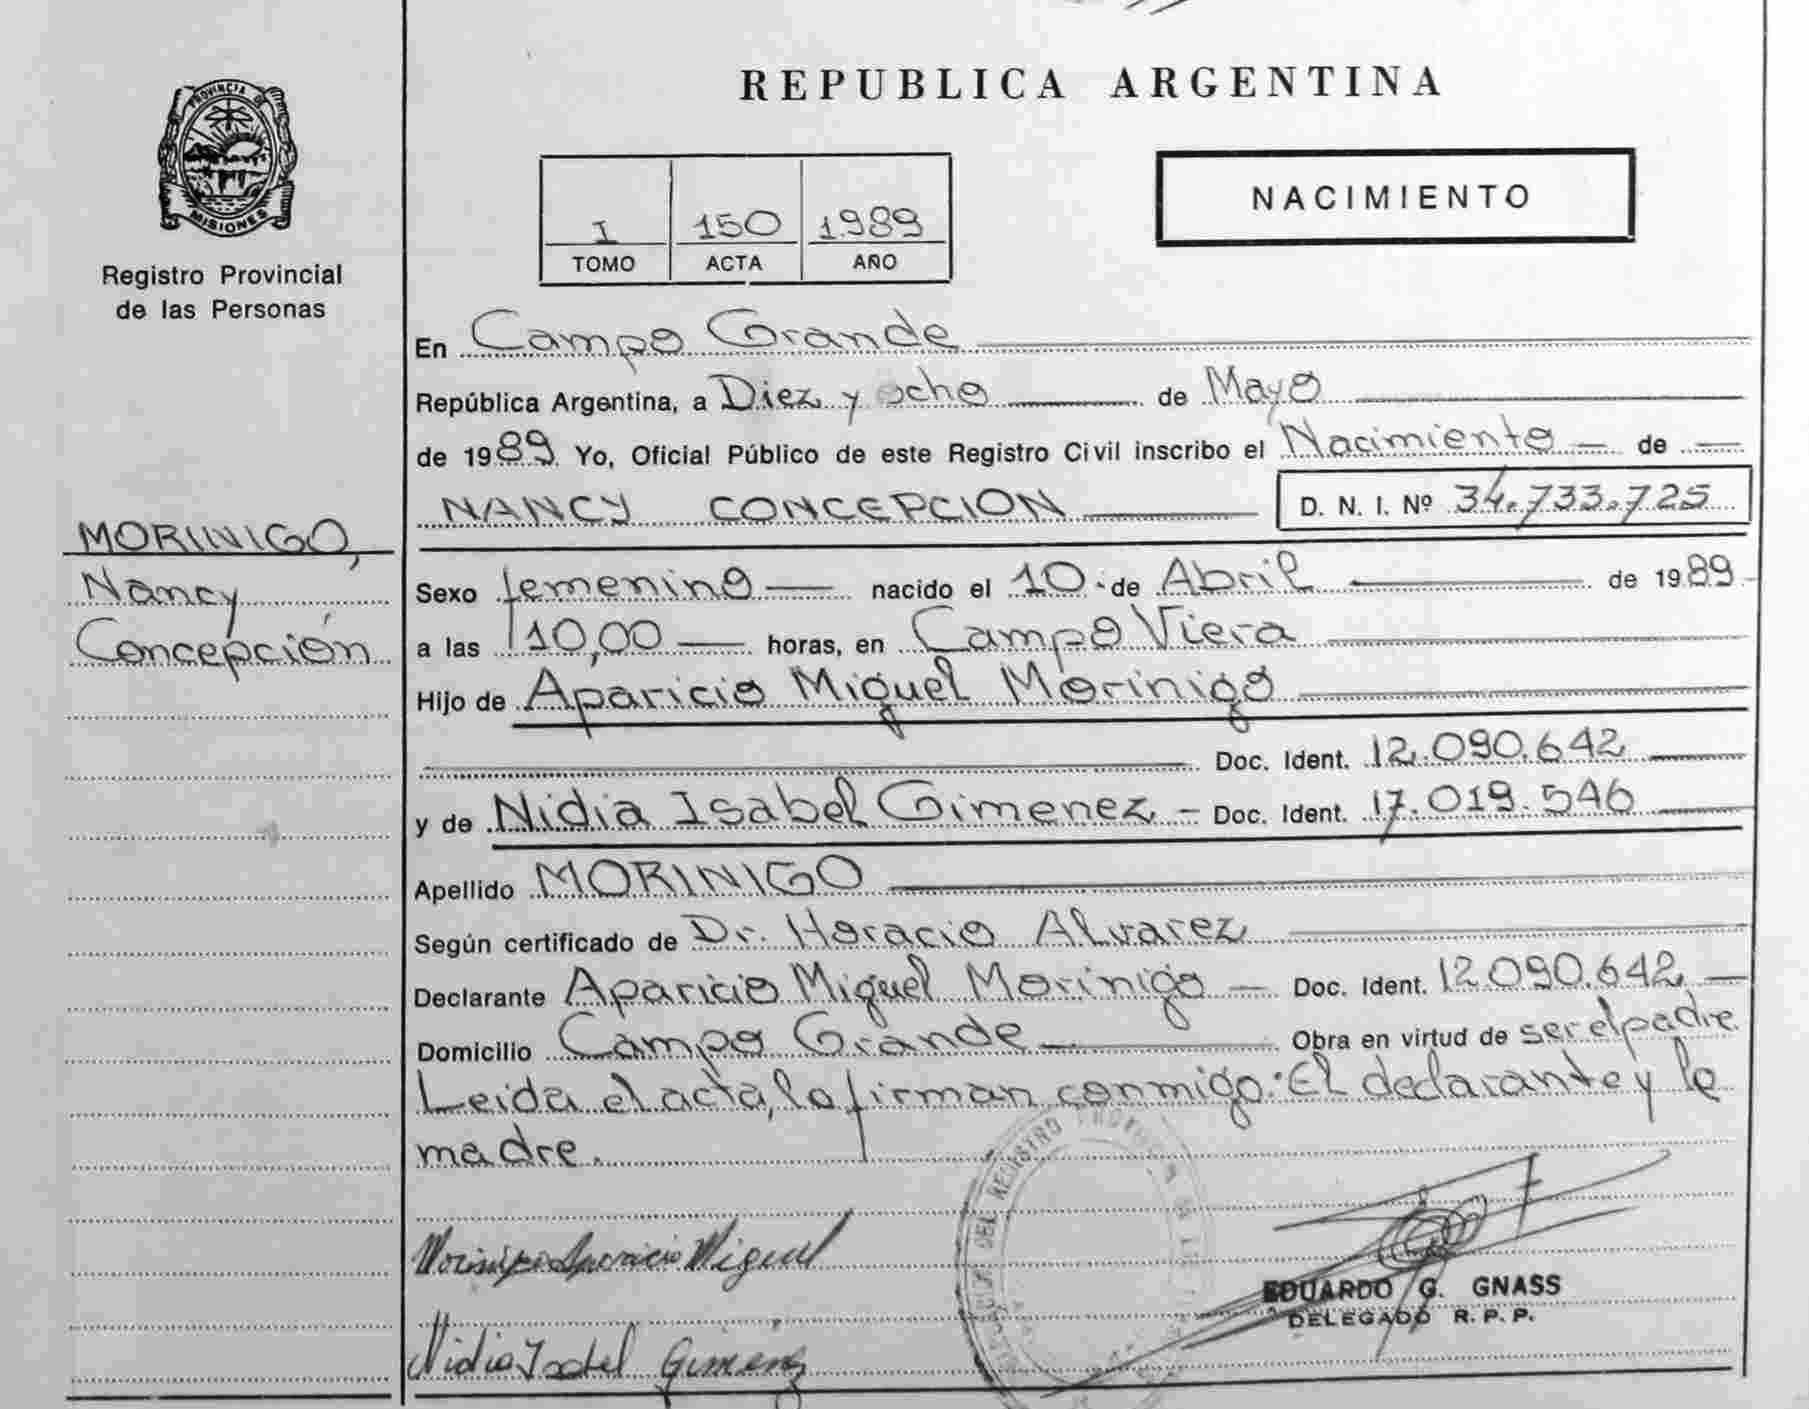 REPUBLICA ARGENTINA
PROVINCIA DE
MISIONES
Registro Provincial
de las Personas
I 150 1989
TOMO ACTA AÑO
NACIMIENTO
En Campo Grande
República Argentina, a Diez y ocho de Mayo
de 1989 Yo, Oficial Público de este Registro Civil inscribo el Nacimiento de
NANCY CONCEPCION D. N. I. Nº 34.733.725
MORINIGO,
Nancy
Concepción
Sexo femenino nacido el 10 de Abril de 1989
a las 10,00 horas, en Campo Viera
Hijo de Aparicio Miguel Morinigo
Doc. Ident. 12.090.642
y de Nidia Isabel Gimenez - Doc. Ident. 17.019.546
Apellido MORINIGO
Según certificado de Dr. Horacio Alvarez
Declarante Aparicio Miguel Morinigo - Doc. Ident. 12.090.642
Domicilio Campo Grande Obra en virtud de ser el padre
Leida el acta, la firman conmigo: El declarante y la
madre.
Morinigo Aparicio Miguel
EDUARDO G. GNASS
DELEGADO R. P. P.
Nidia Isabel Gimenez
DEL REGISTRO PROVINCIAL DE LAS